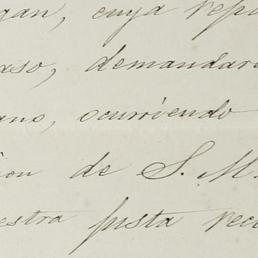 gan, cuya repa
aso, demandar
ano, ocurriendo
ion de S. M.
estra justa rec